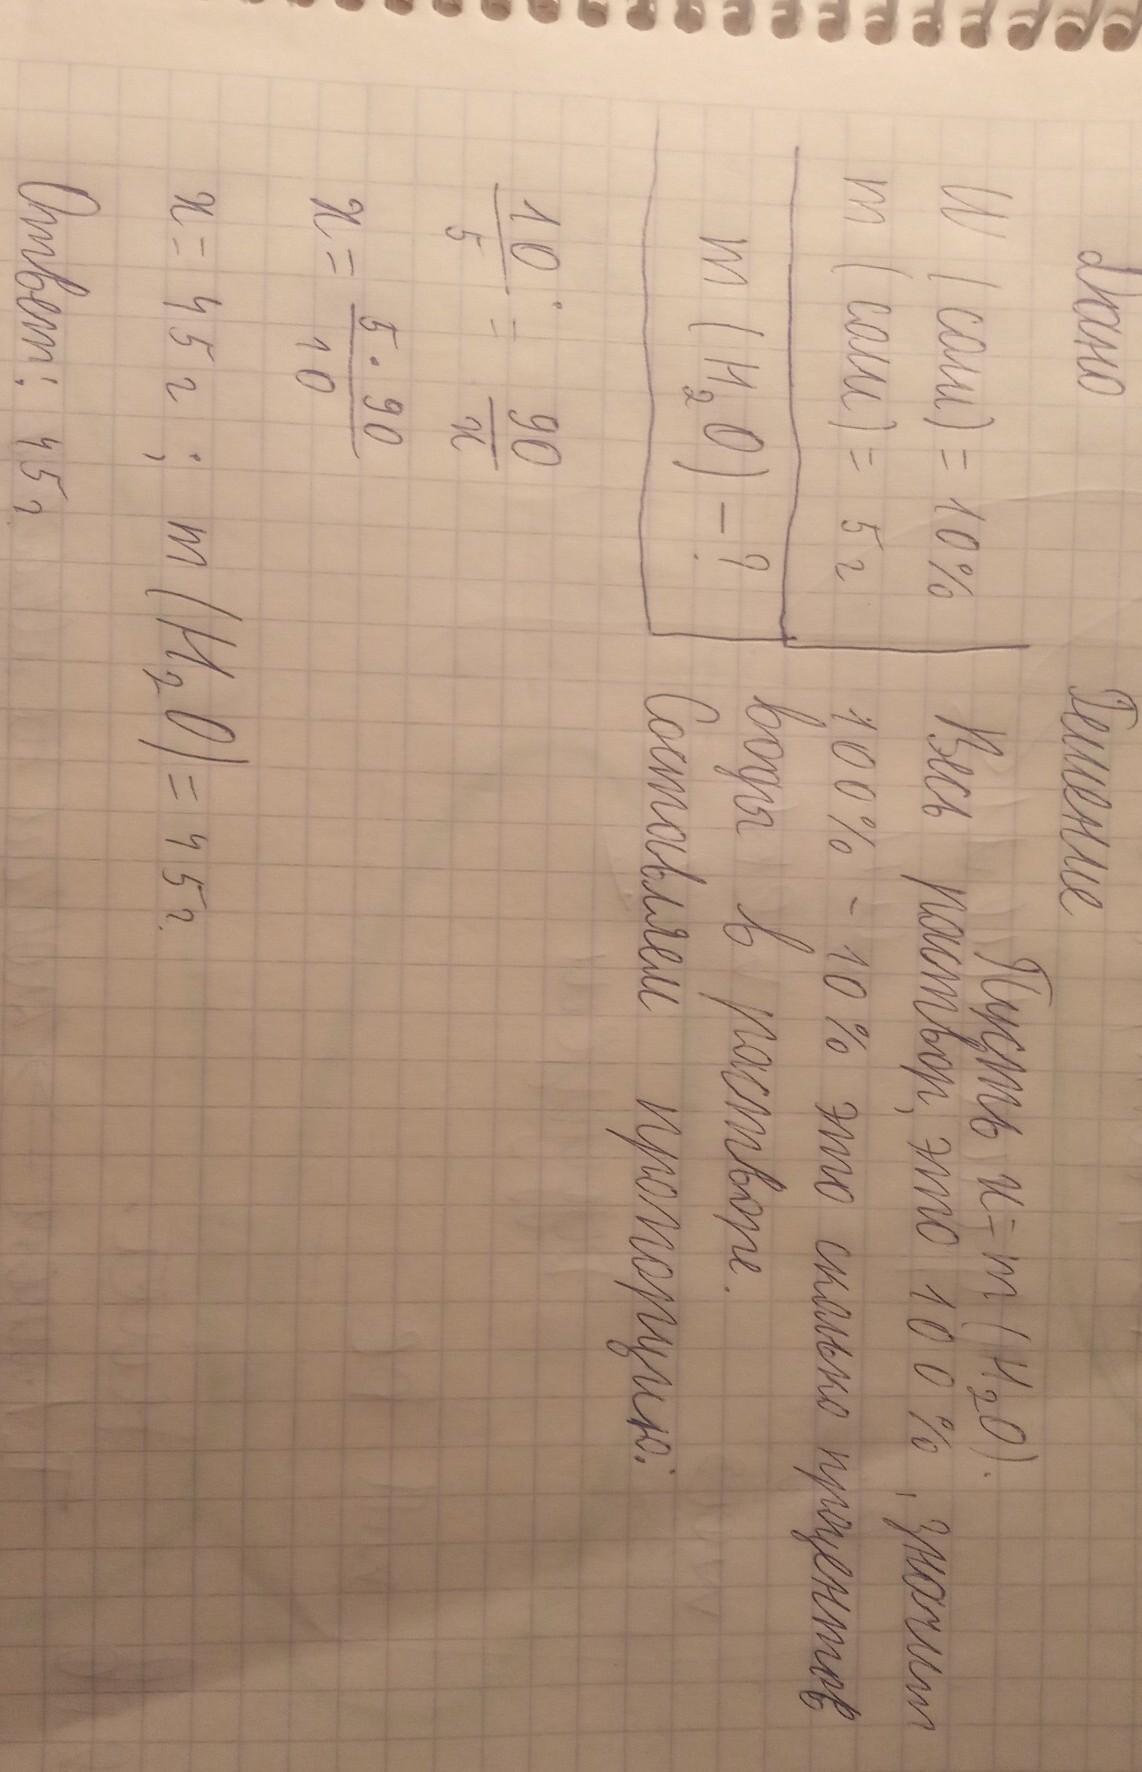 Дано
W (соли) = 10%
m (соли) = 5 г
m (H₂O) - ?
Решение
Пусть x = m (H₂O).
Весь раствор, это 100%, значит
100% - 10% это сколько процентов
воды в растворе.
Составляем пропорцию:
10/5 = 90/x
x = 5·90/10
x = 45 г ; m (H₂O) = 45 г.
Ответ: 45 г